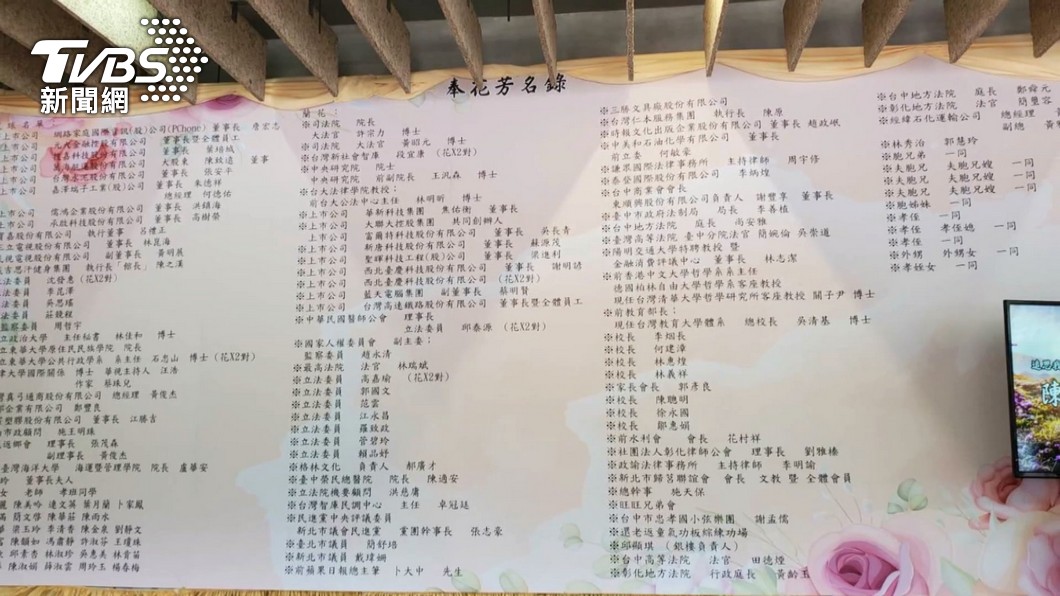 TVBS
新聞網
奉花芳名錄
上市公司 網路家庭國際資訊(股)公司(PChome) 董事長 詹宏志
董事長 葉培城
大股東 陳致遠 董事
董事長 張安平
嘉澤端子工業(股)公司 董事長 朱德祥
總經理 何德佑
上市公司 儒鴻企業股份有限公司 董事長 洪鎮海
上市公司 承啟科技股份有限公司 董事長 高樹榮
執行董事 呂禮正
三立電視股份有限公司 董事長 林崑海
副董事長 黃明展
吉思汗健身集團 執行長「館長」 陳之漢
立法委員 沈發惠 (花X2對)
立法委員 李昆澤
立法委員 吳思瑤
立法委員 莊競程
監察委員 周哲宇
立政治大學 主任秘書 林佳和 博士
立東華大學原住民民族學院 院長
立東華大學公共行政學系 系主任 石忠山 博士 (花X2對)
律大學國際關係 博士 華視主持人 汪浩
作家 蔡珠兒
灣真弓通商股份有限公司 總經理 黃俊杰
部企業有限公司 鄭豐良
塑膠股份有限公司 董事長 江勝吉
市政顧問 施王明珠
返鄉會 理事長 張茂森
副理事長 黃俊杰
臺灣海洋大學 海運暨管理學院 院長 盧華安
玲 董事長夫人
女 老師 孝班同學
麗 陳美吟 連文英 葉月蘭 卜家鳳
高 簡文啓 陳華莊 陳雨水
華 梁玉玲 李清香 陳金泉 劉靜文
富 陳額如 馮肅靜 許淑芬 王瓊珠
邱素杏 林淑珍 吳惠美 林育苗
陳淑娟 薛淑雲 周玲玉 楊春梅
蘭花
※司法院 院長
大法官 許宗力 博士
※司法院 大法官 黃昭元 博士
※台灣新社會智庫 段宜康 (花X2對)
※中央研究院 院士
中央研究院 前副院長 王汎森 博士
※台大法律學院教授；
前台大公法中心主任 林明昕 博士
※上市公司 華新科技集團 焦佑衡 董事長
※上市公司 大聯大控股集團 共同創辦人
上市公司 富爾特科技股份有限公司 董事長 吳長青
※上市公司 新唐科技股份有限公司 董事長 蘇源茂
※上市公司 聖暉科技工程(股)公司 董事長 梁進利
※上市公司 西北臺慶科技股份有限公司 董事長 謝明諺
※上市公司 西北臺慶科技股份有限公司 (花X2對)
※上市公司 藍天電腦集團 副董事長 蔡明賢
※上市公司 台灣高速鐵路股份有限公司 董事長暨全體員工
※中華民國醫師公會 理事長
立法委員 邱泰源 (花X2對)
※國家人權委員會 副主委；
監察委員 趙永清
※最高法院 法官 林瑞斌
※立法委員 高嘉瑜 (花X2對)
※立法委員 郭國文
※立法委員 范雲
※立法委員 江永昌
※立法委員 羅致政
※立法委員 管碧玲
※立法委員 賴品妤
※格林文化 負責人 郝廣才
※臺中榮民總醫院 院長 陳適安
※立法院機要顧問 洪慈庸
※台灣智庫民調中心 主任 卓冠廷
※民進黨中央評議委員
新北市議會民進黨 黨團幹事長 張志豪
※臺北市議員 簡舒培
※新北市議員 戴瑋姍
※前蘋果日報總主筆 卜大中 先生
※三勝文具廠股份有限公司
※台灣仁本服務集團 執行長 陳原
※時報文化出版企業股份有限公司 董事長 趙政岷
※中美和石油化學有限公司 董事長
前立委 何敏豪
※謙眾國際法律事務所 主持律師 周宇修
※泰發國際股份有限公司 李炳煌
※台中商業會會長
東順興股份有限公司負責人 謝豐享 董事長
※臺中市政府法制局 局長 李善植
※台中地方法院 庭長 尚安雅
※臺灣高等法院 臺中分院法官 簡婉倫 吳崇道
※陽明交通大學特聘教授 暨
金融消費評議中心 董事長 林志潔
※前香港中文大學哲學系系主任
德國柏林自由大學哲學系客座教授
現任台灣清華大學哲學研究所客座教授 關子尹 博士
※前教育部長；
現任台灣教育大學體系 總校長 吳清基 博士
※校長 李烟長
※校長 何建漳
※校長 林惠煌
※校長 林義祥
※家長會長 郭彥良
※校長 陳聰明
※校長 徐永國
※校長 鄔惠娟
※前水利會 會長 花村祥
※社團法人彰化律師公會 理事長 劉雅榛
※政諭法律事務所 主持律師 李明諭
※新北市歸茗聯誼會 會長 文教 暨 全體會員
※總幹事 施天保
※旺旺兄弟會
※台中市忠孝國小弦樂團 謝孟儒
※還老返童氣功板綜練功場
※邱顯琪 (銀樓負責人)
※台中高等法院 法官 田德煙
※彰化地方法院 行政庭長 黃齡玉
※台中地方法院 庭長 鄭舜元
※彰化地方法院 法官 簡璽容
※經緯石化運輸公司 總經理
副總
※林秀治 郭慧玲
※胞兄弟 一同
※夫胞兄 夫胞兄嫂 一同
※夫胞兄 夫胞兄嫂 一同
※夫胞兄 夫胞兄嫂 一同
※胞姊妹 一同
※孝侄 孝侄媳 一同
※孝侄 一同
※外甥 外甥女 一同
※孝姪女 一同
追思
陳